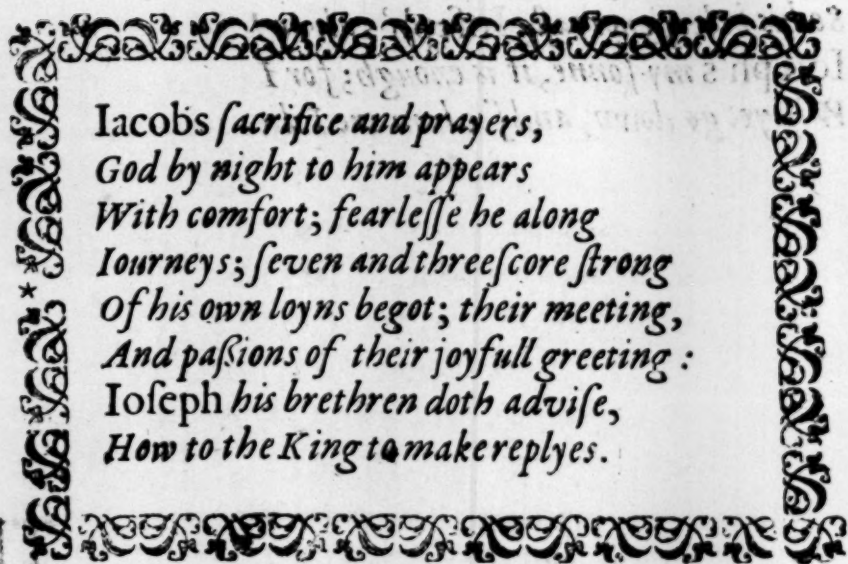 Iacobs ſacrifice and prayers,
God by night to him appears
With comfort; fearleſſe he along
Iourneys; ſeven and threeſcore ſtrong
Of his own loyns begot; their meeting,
And paßions of their joyfull greeting :
Ioſeph his brethren doth adviſe,
How to the King to make replyes.